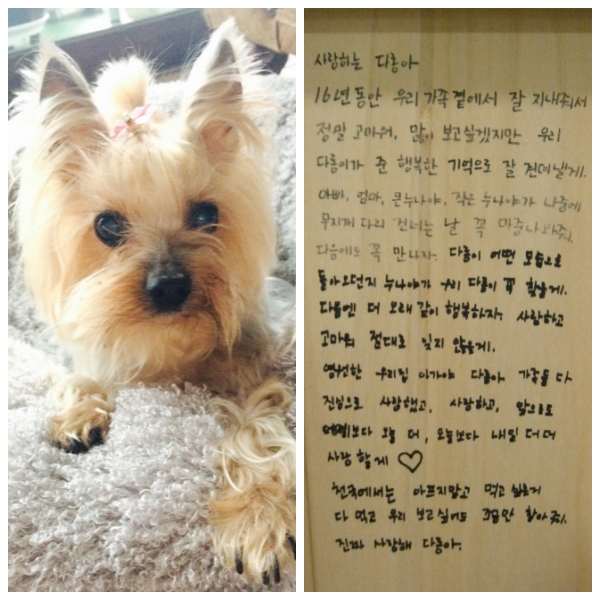 사랑하는 다롱아
16년동안 우리 가족곁에서 잘 지내줘서
정말 고마워, 많이 보고싶겠지만 우리
다롱이가 준 행복한 기억으로 잘 견뎌낼게.
아빠, 엄마, 큰누나야, 작은 누나야가 나중에
무지개 다리 건너는 날 꼭 마중나와줘.
다음에도 꼭 만나자. 다롱이 어떤 모습으로
돌아오던지 누나야가 우리 다롱이 꼭 찾을게.
다음엔 더 오래 같이 행복하자. 사랑하고
고마워 절대로 잊지 않을게.
영원한 우리집 아가야 다롱아 가족들 다
진심으로 사랑했고, 사랑하고, 앞으로
어제보다 오늘 더, 오늘보다 내일 더 더
사랑할게 ♡
천국에서는 아프지말고 먹고 싶은거
다 먹고 우리 보고싶어도 조금만 참아줘.
진짜 사랑해 다롱아.